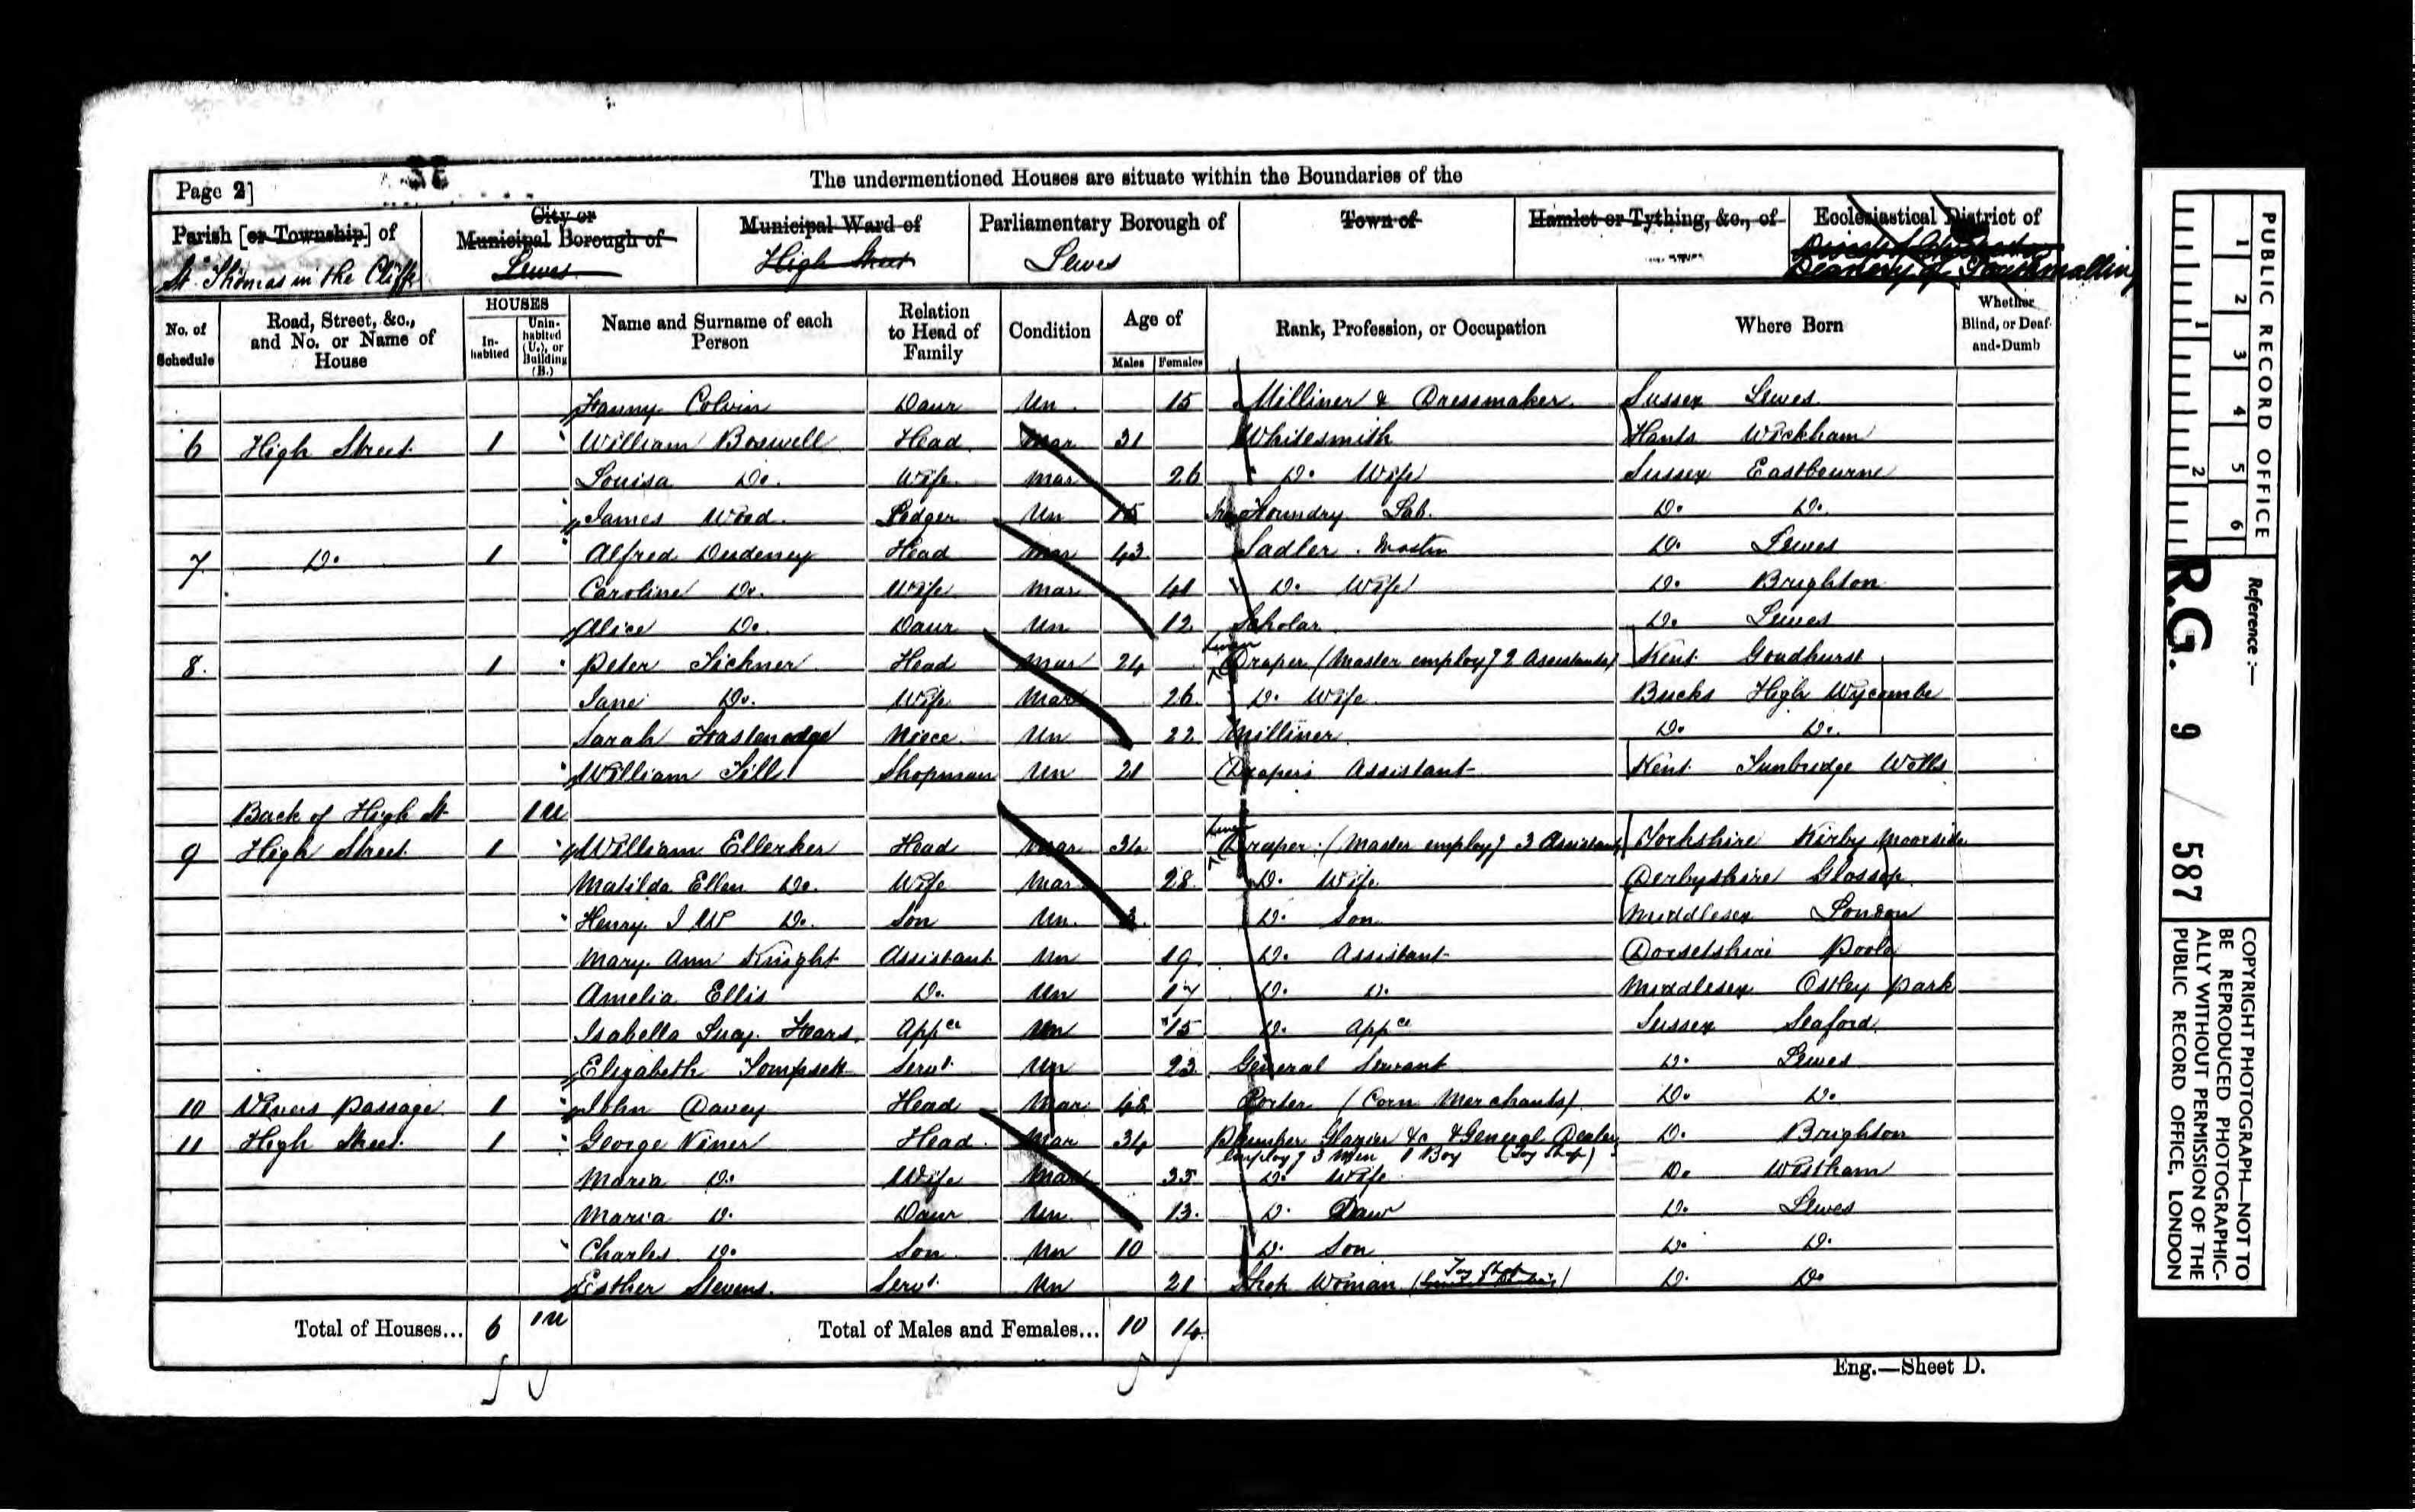 Page 2]
The undermentioned Houses are situate within the Boundaries of the
Parish [or Township] of
St. Thomas in the Cliffe
City or
Municipal Borough of
Lewes
Municipal Ward of
High Street
Parliamentary Borough of
Lewes
Town of
Hamlet or Tything, &c., of
Ecclesiastical District of
Deanery of Southmalling
No. of Schedule
Road, Street, &c., and No. or Name of House
HOUSES
In-habited
Unin-habited (U.), or Building (B.)
Name and Surname of each Person
Relation to Head of Family
Condition
Age of
Males
Females
Rank, Profession, or Occupation
Where Born
Whether Blind, or Deaf-and-Dumb
Fanny Colvin Daur Un 15 Milliner & Dressmaker Sussex Lewes
6 High Street 1 William Boswell Head Mar 31 Whitesmith Hants Wickham
Louisa Do. Wife Mar 26 Do. Wife Sussex Eastbourne
James Wood Lodger Un 15 Foundry Lab. Do. Do.
7 Do. 1 Alfred Dudeney Head Mar 43 Sadler Master Do. Lewes
Caroline Do. Wife Mar 41 Do. Wife Do. Brighton
Alice Do. Daur Un 12 Scholar Do. Lewes
8 1 Peter Tickner Head Mar 24 Linen Draper (Master employg 2 Assistants) Kent Goudhurst
Jane Do. Wife Mar 26 Do. Wife Bucks High Wycombe
Sarah Niece Un 22 Milliner Do. Do.
William Till Shopman Un 21 Drapers Assistant Kent Tunbridge Wells
Back of High St 1U
9 High Street 1 William Ellerker Head Mar 34 Linen Draper (Master employg 3 Assistants Yorkshire Kirby Moorside
Matilda Ellen Do. Wife Mar 28 Do. Wife Derbyshire Glossop
Henry Do. Son Un 3 Do. Son Middlesex London
Mary Ann Knight Assistant Un 19 Do. Assistant Dorsetshire Poole
Amelia Ellis Do. Un 17 Do. Do. Middlesex Park
Isabella Appce Un 15 Do. Appce Sussex Seaford
Elizabeth Tompsett Servt. Un 23 General Servant Do. Lewes
10 Viners Passage 1 John Davey Head Mar 48 Porter (Corn Merchants) Do. Do.
11 High Street 1 George Viner Head Mar 34 Plumber Glazier &c & General Dealer Do. Brighton
employg 3 Men 1 Boy (Toy Shop)
Maria Do. Wife Mar 35 Do. Wife Do. Westham
Maria D. Daur Un 13 D. Daur Do. Lewes
Charles Do. Son Un 10 D. Son Do. D.
Esther Stevens Servt. Un 21 Shop Woman (Toy Shop) D. Do
Total of Houses... 6 1U
Total of Males and Females... 10 14
Eng.—Sheet D.
PUBLIC RECORD OFFICE
1 2 3 4 5 6
1 2
Reference:—
R.G. 9 / 587
COPYRIGHT PHOTOGRAPH—NOT TO
BE REPRODUCED PHOTOGRAPHIC-
ALLY WITHOUT PERMISSION OF THE
PUBLIC RECORD OFFICE, LONDON